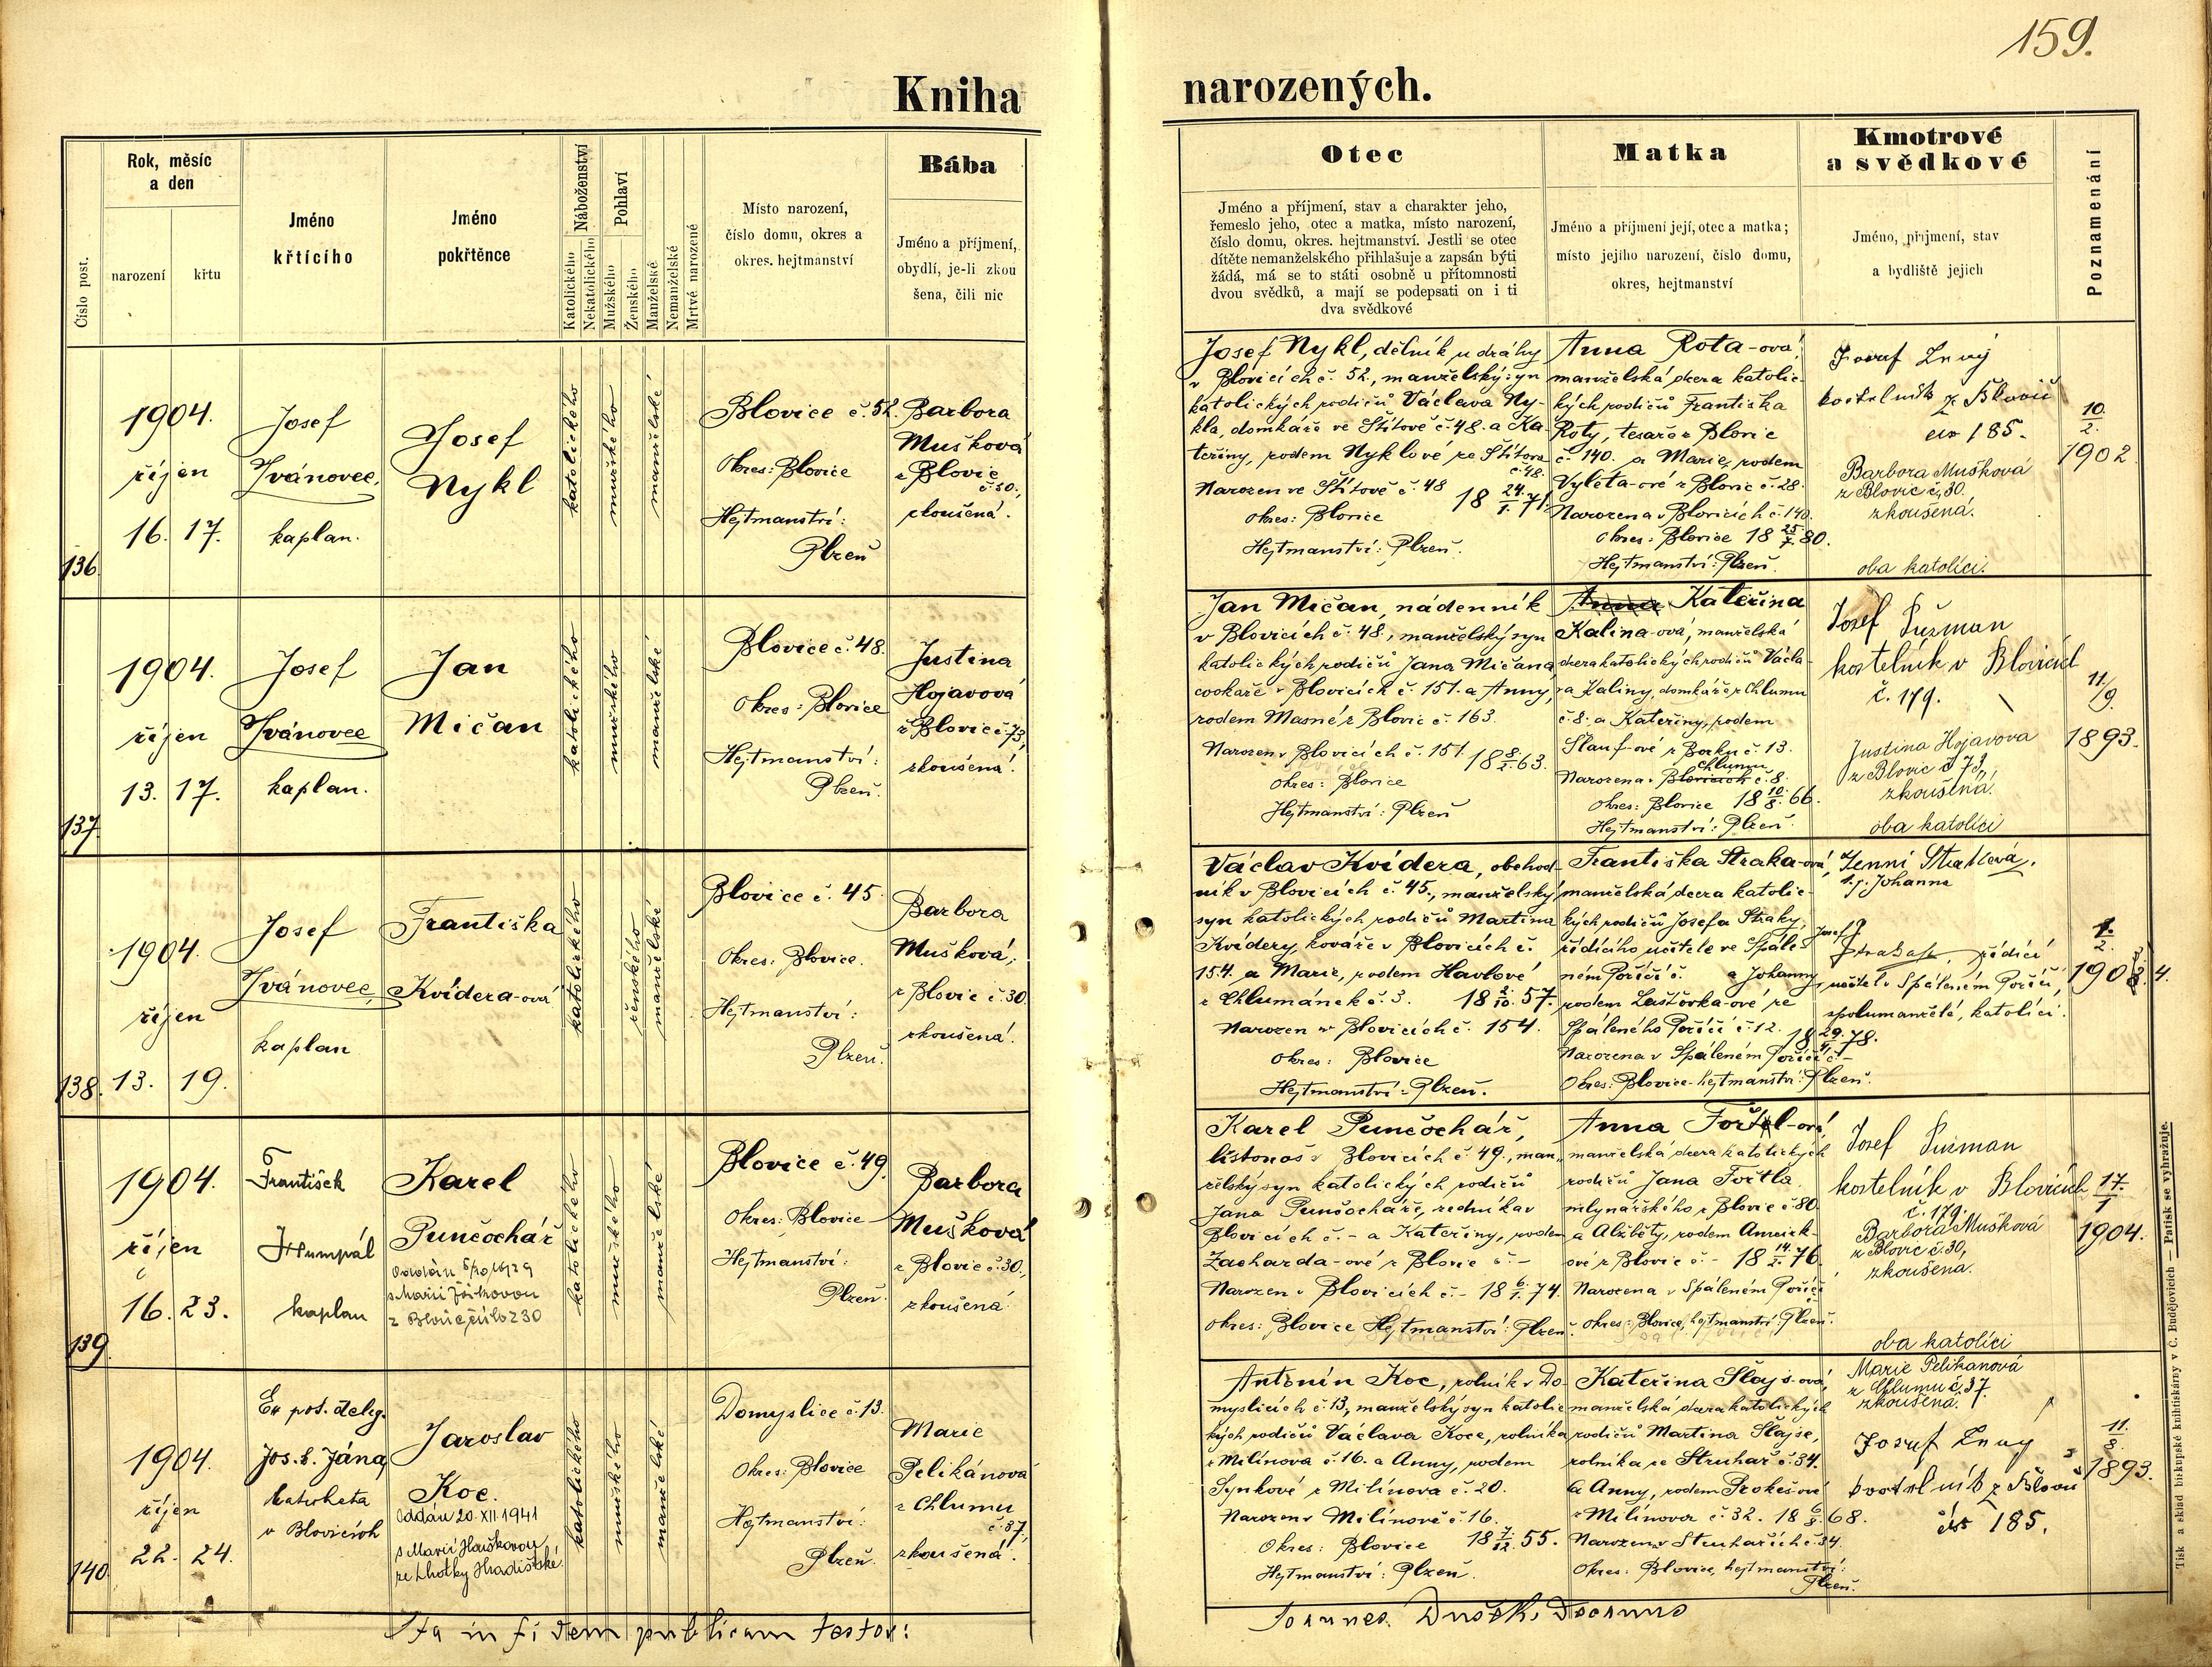 159.
Kniha narozených.
Číslo post.
Rok, měsíc
a den
narození
křtu
Jméno
křtícího
Jméno
pokřtěnce
Náboženství
Katolického
Nekatolického
Pohlaví
Mužského
Ženského
Manželské
Nemanželské
Mrtvé narozené
Místo narození,
číslo domu, okres a
okres. hejtmanství
Bába
Jméno a příjmení,
obydlí, je-li zkou
šena, čili nic
Otec
Jméno a příjmení, stav a charakter jeho,
řemeslo jeho, otec a matka, místo narození,
číslo domu, okres. hejtmanství. Jestli se otec
dítěte nemanželského přihlašuje a zapsán býti
žádá, má se to státi osobně u přítomnosti
dvou svědků, a mají se podepsati on i ti
dva svědkové
Matka
Jméno a příjmení její, otec a matka;
místo jejího narození, číslo domu,
okres, hejtmanství
Kmotrové
a svědkové
Jméno, příjmení, stav
a bydliště jejich
Poznamenání
136.
1904.
říjen
16. 17.
Josef
Ivánovec,
kaplan.
Josef
Nykl
katolického
mužského
manželské
Blovice č. 52.
Okres: Blovice
Hejtmanství:
Plzeň
Barbora
Mušková
z Blovic
č. 30.,
zkoušená.
Josef Nykl, dělník u dráhy
v Blovicích č. 52., manželský syn
katolických rodičů Václava Ny-
kla, domkáře ve Štítově č. 48. a Ka-
teřiny, rodem Nyklové ze Štítova
č. 48.
Narozen ve Štítově č. 48 18 24./1. 71.
Okres: Blovice
Hejtmanství: Plzeň.
Anna Rota-ová,
manželská dcera katolic-
kých rodičů Františka
Roty, tesaře z Blovic
č. 140. a Marie, rodem
Vyleta-ové z Blovic č. 28.
Narozena v Blovicích č. 140.
Okres: Blovice 18 25/7. 80.
Hejtmanství: Plzeň.
Josef
kostelník z Blovic
čís 185.
Barbora Mušková
z Blovic č. 30.
zkoušená.
oba katolíci.
10./2.
1902
137.
1904.
říjen
13. 17.
Josef
Ivánovec
kaplan.
Jan
Mičan
katolického
mužského
manželské
Blovice č. 48.
Okres: Blovice
Hejtmanství:
Plzeň.
Justina
Hojavová
z Blovic č. 73,
zkoušená.
Jan Mičan, nádenník
v Blovicích č. 48., manželský syn
katolických rodičů Jana Mičana,
cookaře v Blovicích č. 151. a Anny,
rodem Masné z Blovic č. 163.
Narozen v Blovicích č. 151. 18 8./2. 63.
Okres: Blovice
Hejtmanství: Plzeň
Anna Kateřina
Kalina-ová, manželská
dcera katolických rodičů Václa-
va Kaliny, domkáře z Chlumu
č. 8. a Kateřiny, rodem
Šlauf-ové z Borku č. 13.
Chlumu
Narozena v Blovicích č. 8.
Okres: Blovice 18 10./8. 66.
Hejtmanství: Plzeň.
Josef Pužman
kostelník v Blovicích
č. 179.
Justina Hojavova
z Blovic č 73,
zkoušená.
oba katolíci
11/9.
1893.
138.
1904.
říjen
13. 19.
Josef
Ivánovec,
kaplan
Františka
Kvídera-ová
katolického
ženského
manželské
Blovice č. 45
Okres: Blovice.
Hejtmanství:
Plzeň.
Barbora
Mušková,
z Blovic č. 30.
zkoušená.
Václav Kvídera, obchod-
ník v Blovicích č. 45., manželský
syn katolických rodičů Martina
Kvídery, kováře v Blovicích č.
154. a Marie, rodem Havlové
z Chlumánek č. 3. 18 2./10. 57.
Narozen v Blovicích č. 154.
Okres: Blovice
Hejtmanství: Plzeň.
Františka Straka-ová,
manželská dcera katolic-
kých rodičů Josefa Straky,
řídícího učitele ve Spále-
ném Poříčí č. a Johanny,
rodem Laštovka-ové ze
Spáleného Poříčí č 12. 18 29./4. 78.
Narozena v Spáleném Poříčí č. -
Okres: Blovice - hejtmanství: Plzeň.
Jenni Straková,
t. j. Johanna
Josef J.
Straka, řídící
učitel v Spáleném Poříčí,
spolumanželé, katolíci.
1./2.
1903. 4.
139.
1904.
říjen
16. 23.
František
Humpál
kaplan
Karel
Punčochář
Oddán
s Marií
z Blovic číslo 230
katolického
mužského
manželské
Blovice č. 49.
Okres: Blovice
Hejtmanství:
Plzeň.
Barbora
Mušková
z Blovic č. 30.,
zkoušená.
Karel Punčochář,
listonoš v Blovicích č. 49., man-
želský syn katolických rodičů
Jana Punčocháře, zedníka v
Blovicích č. - a Kateřiny, rodem
Zacharda-ové z Blovic č. -
Narozen v Blovicích č. - 18 6./1. 74.
Okres: Blovice Hejtmanství: Plzeň.
Anna Fořtl-ová,
manželská dcera katolických
rodičů Jana Fořtla
mlynářského z Blovic č 80.
a Alžběty, rodem
ové z Blovic č. - 18 14./2. 76.
Narozena v Spáleném Poříčí
Okres: Blovice, hejtmanství: Plzeň.
Josef Pužman
kostelník v Blovicích
č. 179.
Barbora Mušková
z Blovic č. 30,
zkoušena.
oba katolíci
17./1
1904.
140.
1904.
říjen
22. 24.
Ex pos. deleg.
Jos. Š. Jána,
katecheta
v Blovicích
Jaroslav
Koc.
Oddán 20. XII. 1941
s Marií Hauškovou
ze Lhotky Hradištské.
katolického
mužského
manželské
Domyslice č. 13.
Okres: Blovice
Hejtmanství:
Plzeň.
Marie
Pelikánová
z Chlumu
č. 37,
zkoušená.
Antonín Koc, rolník v Do-
myslicích č. 13, manželský syn katolic-
kých rodičů Václava Koce, rolníka
z Milínova č. 16. a Anny, rodem
Synkové z Milínova č. 20.
Narozen v Milínově č. 16.
Okres: Blovice 18 7./12. 55.
Hejtmanství: Plzeň.
Kateřina Šlajs-ová,
manželská dcera katolických
rodičů Martina Šlajse,
rolníka ze Struhař č. 34.
a Anny, rodem Prokeš-ové
z Milínova č. 32. 18 6./8. 68.
Narozena v Struhařích č. 34.
Okres: Blovice, hejtmanství:
Plzeň.
Marie Pelikanová
z Chlumu č. 37.
zkoušená.
Josef
kostelník z Blovic
čís 185.
11./8.
1893.
Ita in fidem publicam testor:
Joannes Dušek, Decanus
Tisk a sklad biskupské knihtiskárny v Č. Budějovicích — Patisk se vyhražuje.